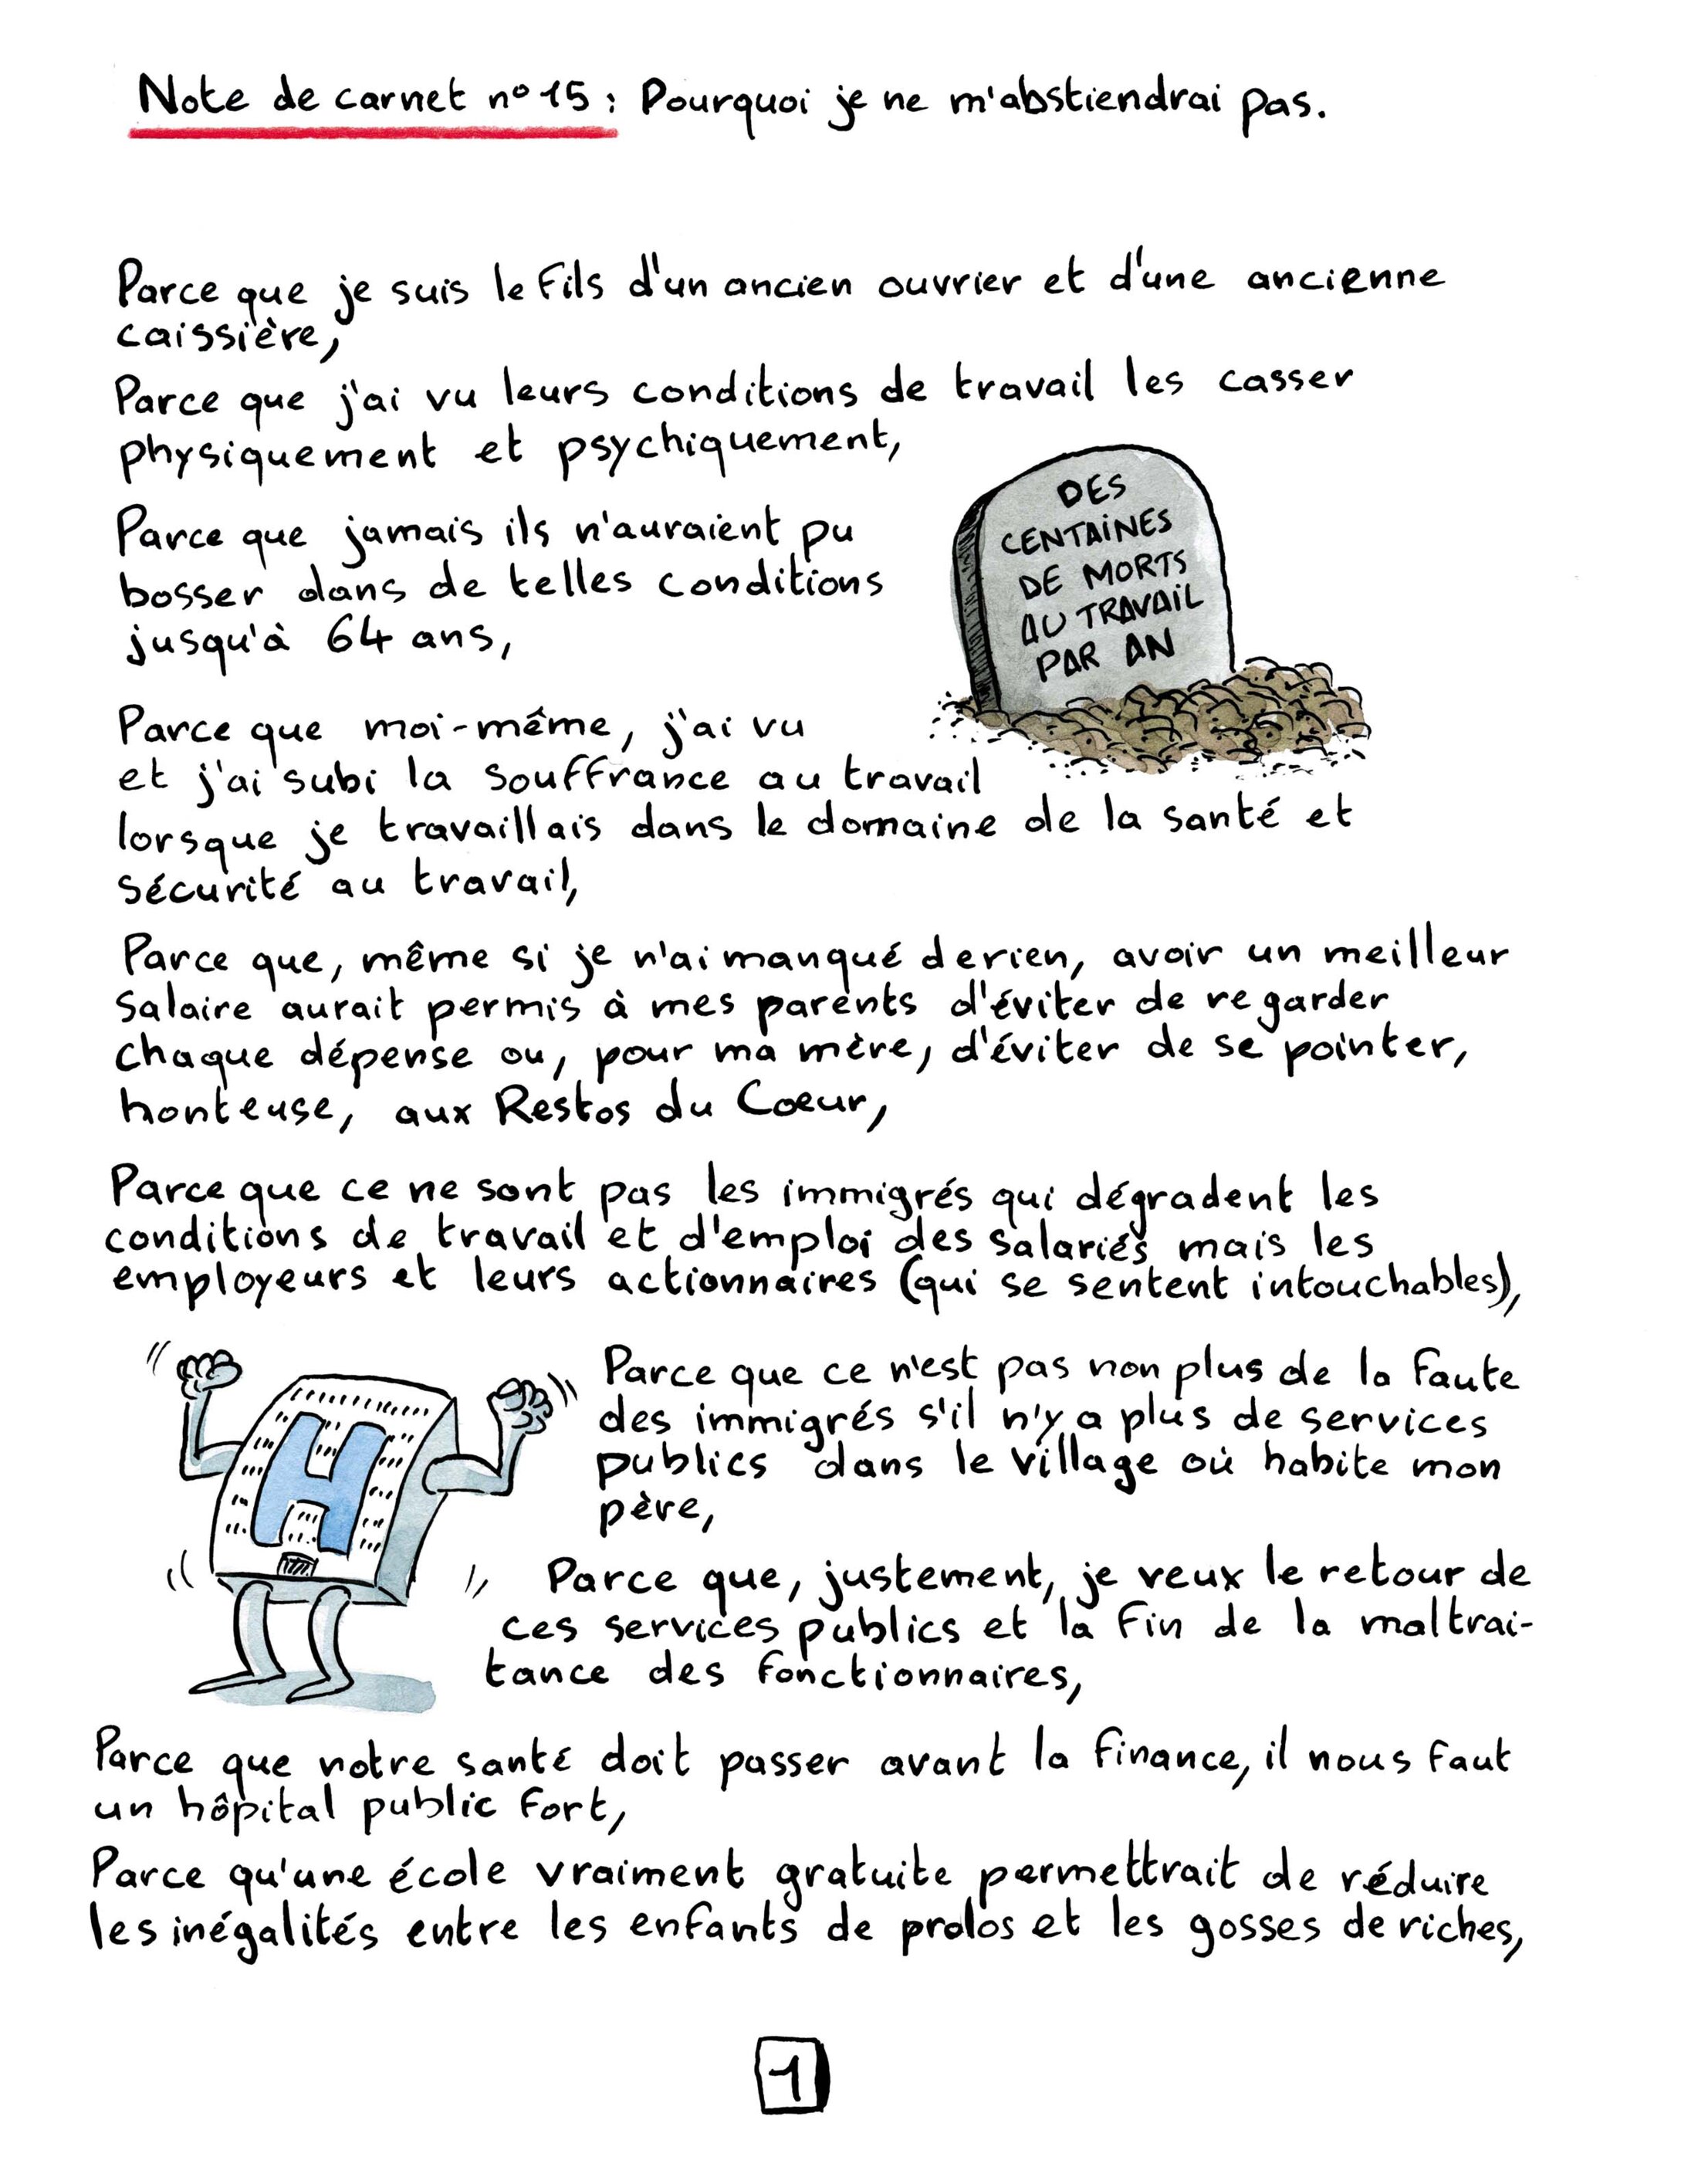 Note de carnet n° 15 : Pourquoi je ne m'abstiendrai pas.
Parce que je suis le fils d'un ancien ouvrier et d'une ancienne
caissière,
Parce que j'ai vu leurs conditions de travail les casser
physiquement et psychiquement,
Parce que jamais ils n'auraient pu
bosser dans de telles conditions
jusqu'à 64 ans,
DES
CENTAINES
DE MORTS
AU TRAVAIL
PAR AN
Parce que moi-même, j'ai vu
et j'ai subi la souffrance au travail
lorsque je travaillais dans le domaine de la santé et
sécurité au travail,
Parce que, même si je n'ai manqué de rien, avoir un meilleur
salaire aurait permis à mes parents d'éviter de regarder
chaque dépense ou, pour ma mère, d'éviter de se pointer,
honteuse, aux Restos du Coeur,
Parce que ce ne sont pas les immigrés qui dégradent les
conditions de travail et d'emploi des salariés mais les
employeurs et leurs actionnaires (qui se sentent intouchables),
H
Parce que ce n'est pas non plus de la faute
des immigrés s'il n'y a plus de services
publics dans le village où habite mon
père,
Parce que, justement, je veux le retour de
ces services publics et la fin de la maltrai-
tance des fonctionnaires,
Parce que notre santé doit passer avant la finance, il nous faut
un hôpital public fort,
Parce qu'une école vraiment gratuite permettrait de réduire
les inégalités entre les enfants de prolos et les gosses de riches,
1